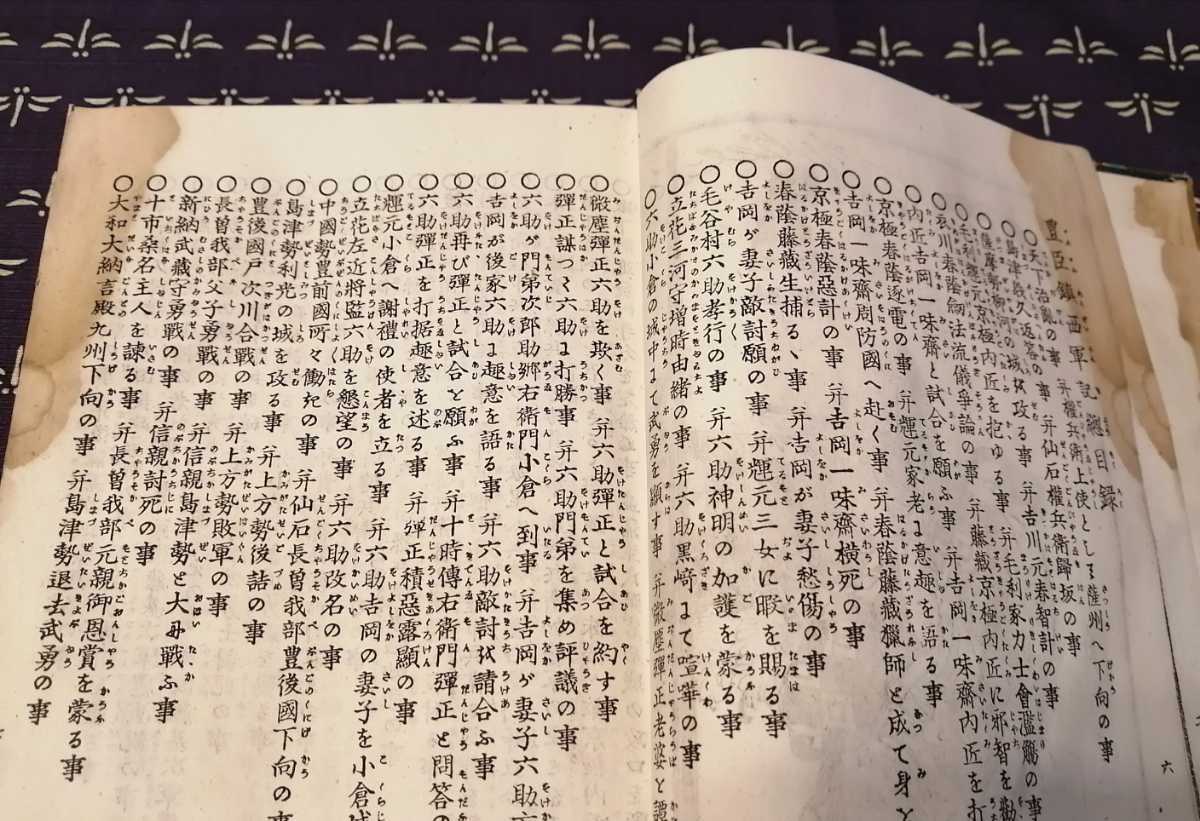 豊臣鎮西軍記總目録
○天下治亂の事 并權兵衛上使として薩州へ下向の事
○島津義久返答の事 并仙石權兵衛歸坂の事
○薩摩勢御河の城を攻る事 并吉川元春智計の事
○毛利輝元京極内匠を抱ゆる事 并毛利家力士會濫觴の事
○衣川春蔭劔法流儀爭論の事 并藤藏京極内匠に邪智を勸
○内匠吉岡一味齋と試合を願ふ事 并吉岡一味齋内匠を打
○京極春蔭逐電の事 并輝元家老に意趣を語る事
○吉岡一味齋周防國へ赴く事 并春蔭藤藏獵師と成て身を
○京極春蔭惡計の事 并吉岡一味齋横死の事
○春蔭藤藏生捕るゝ事 并吉岡が妻子愁傷の事
○吉岡が妻子敵討願の事 并輝元三女に暇を賜る事
○毛谷村六助孝行の事 并六助神明の加護を蒙る事
○立花三河守増時由緒の事 并六助黒﨑にて喧嘩の事
○六助小倉の城中にて武勇を顯す事 并微塵彈正老婆と譚
○微塵彈正六助を欺く事 并六助彈正と試合を約す事
○彈正謀つて六助に打勝事 并六助門弟を集め評議の事
○六助が門弟次郎助郷右衛門小倉へ到事 并吉岡が妻子六助方
○吉岡が後家六助に趣意を語る事 并六助敵討を請合ふ事
○六助再び彈正と試合を願ふ事 并十時傳右衛門彈正と問答の
○六助彈正を打据趣意を述る事 并彈正積惡露顯の事
○輝元小倉へ謝禮の使者を立る事 并六助吉岡の妻子を小倉城
○立花左近將監六助を懇望の事 并六助改名の事
○中國勢豊前國所々働きの事 并仙石長曽我部豊後國下向の事
○島津勢利光の城を攻る事 并上方勢後詰の事
○豊後國戸次川合戰の事 并上方勢敗軍の事
○長曽我部父子勇戰の事 并信親島津勢と大に戰ふ事
○新納武藏守勇戰の事 并信親討死の事
○十市桑名主人を諫る事 并長曽我部元親御恩賞を蒙る事
○大和大納言殿九州下向の事 并島津勢退去武勇の事
六